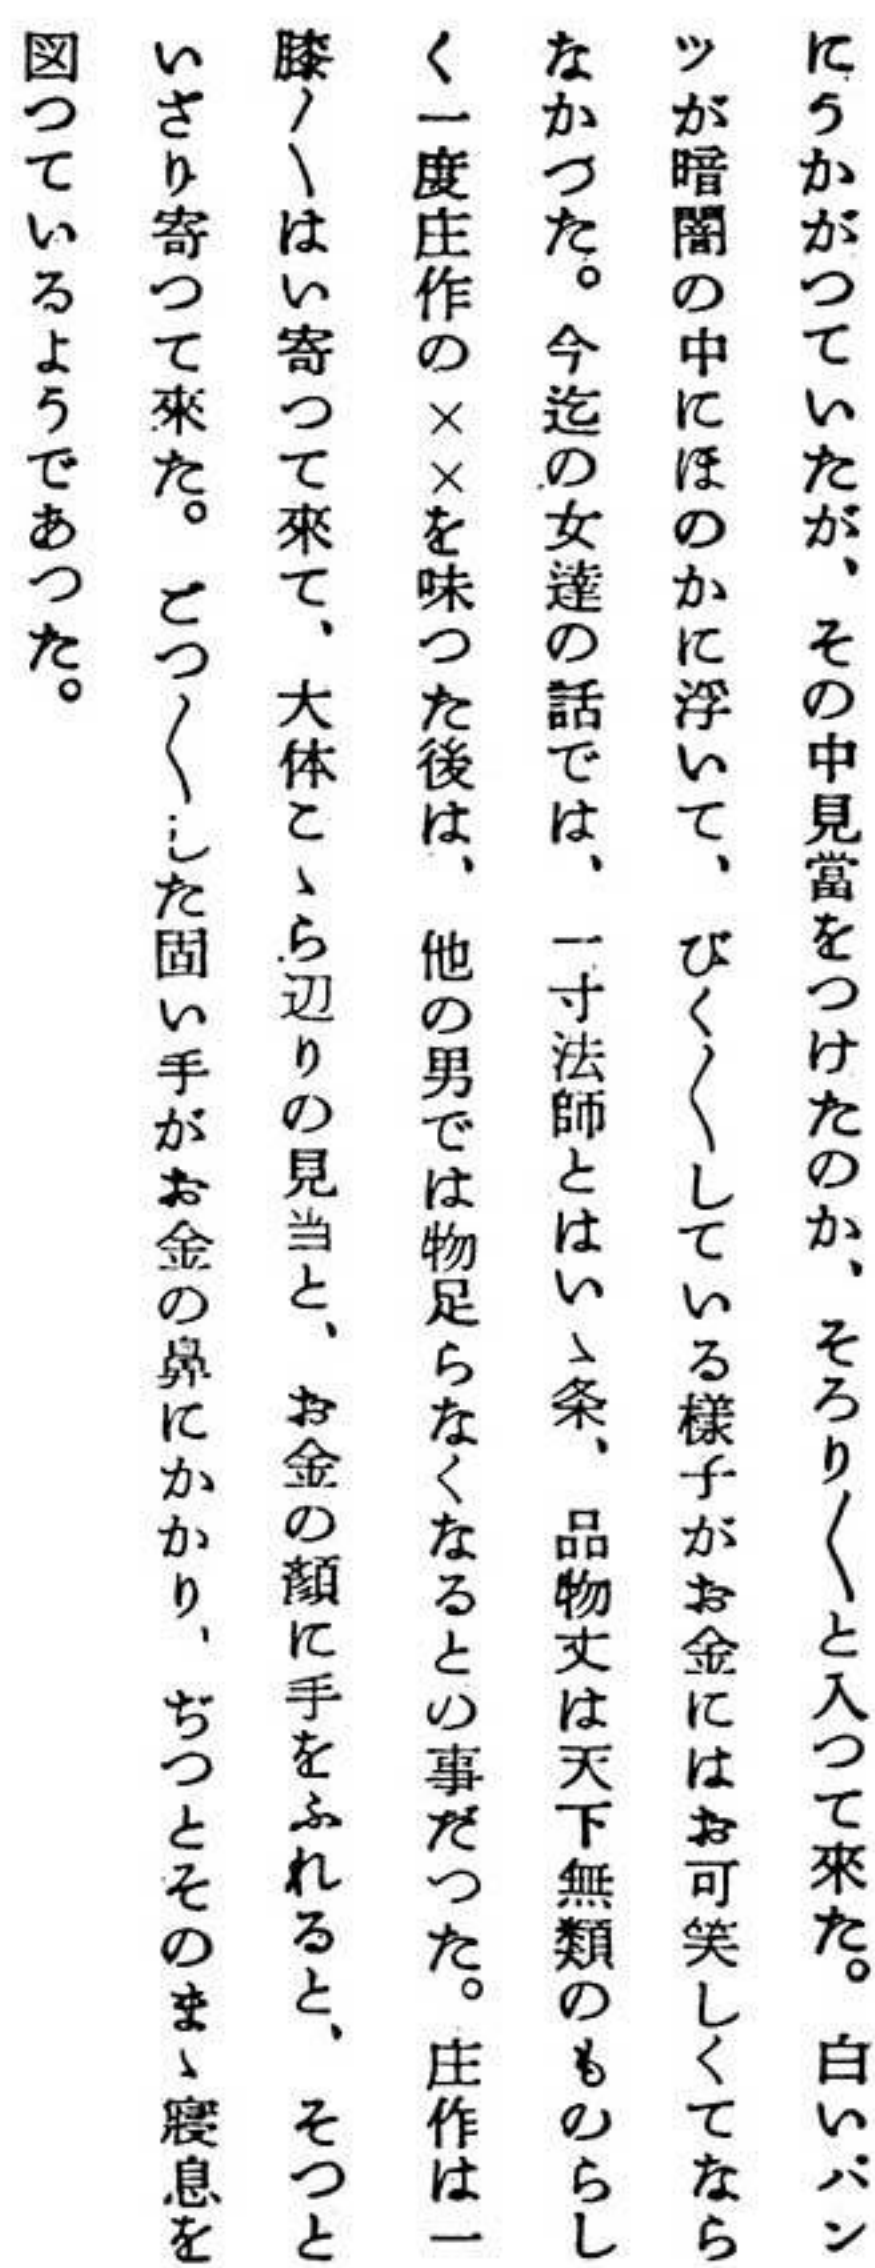 にうかがつていたが、その中見當をつけたのか、そろり〱と入つて來た。白いパン
ツが暗闇の中にほのかに浮いて、びく〱している様子がお金にはお可笑しくてなら
なかづた。今迄の女達の話では、一寸法師とはいゝ条、品物丈は天下無類のものらし
く一度庄作の××を味つた後は、他の男では物足らなくなるとの事だつた。庄作は一
膝〱はい寄つて來て、大体こゝら辺りの見当と、お金の顔に手をふれると、そつと
いざり寄つて來た。ごつ〱した固い手がお金の鼻にかかり、ぢつとそのまゝ寢息を
図つているようであつた。